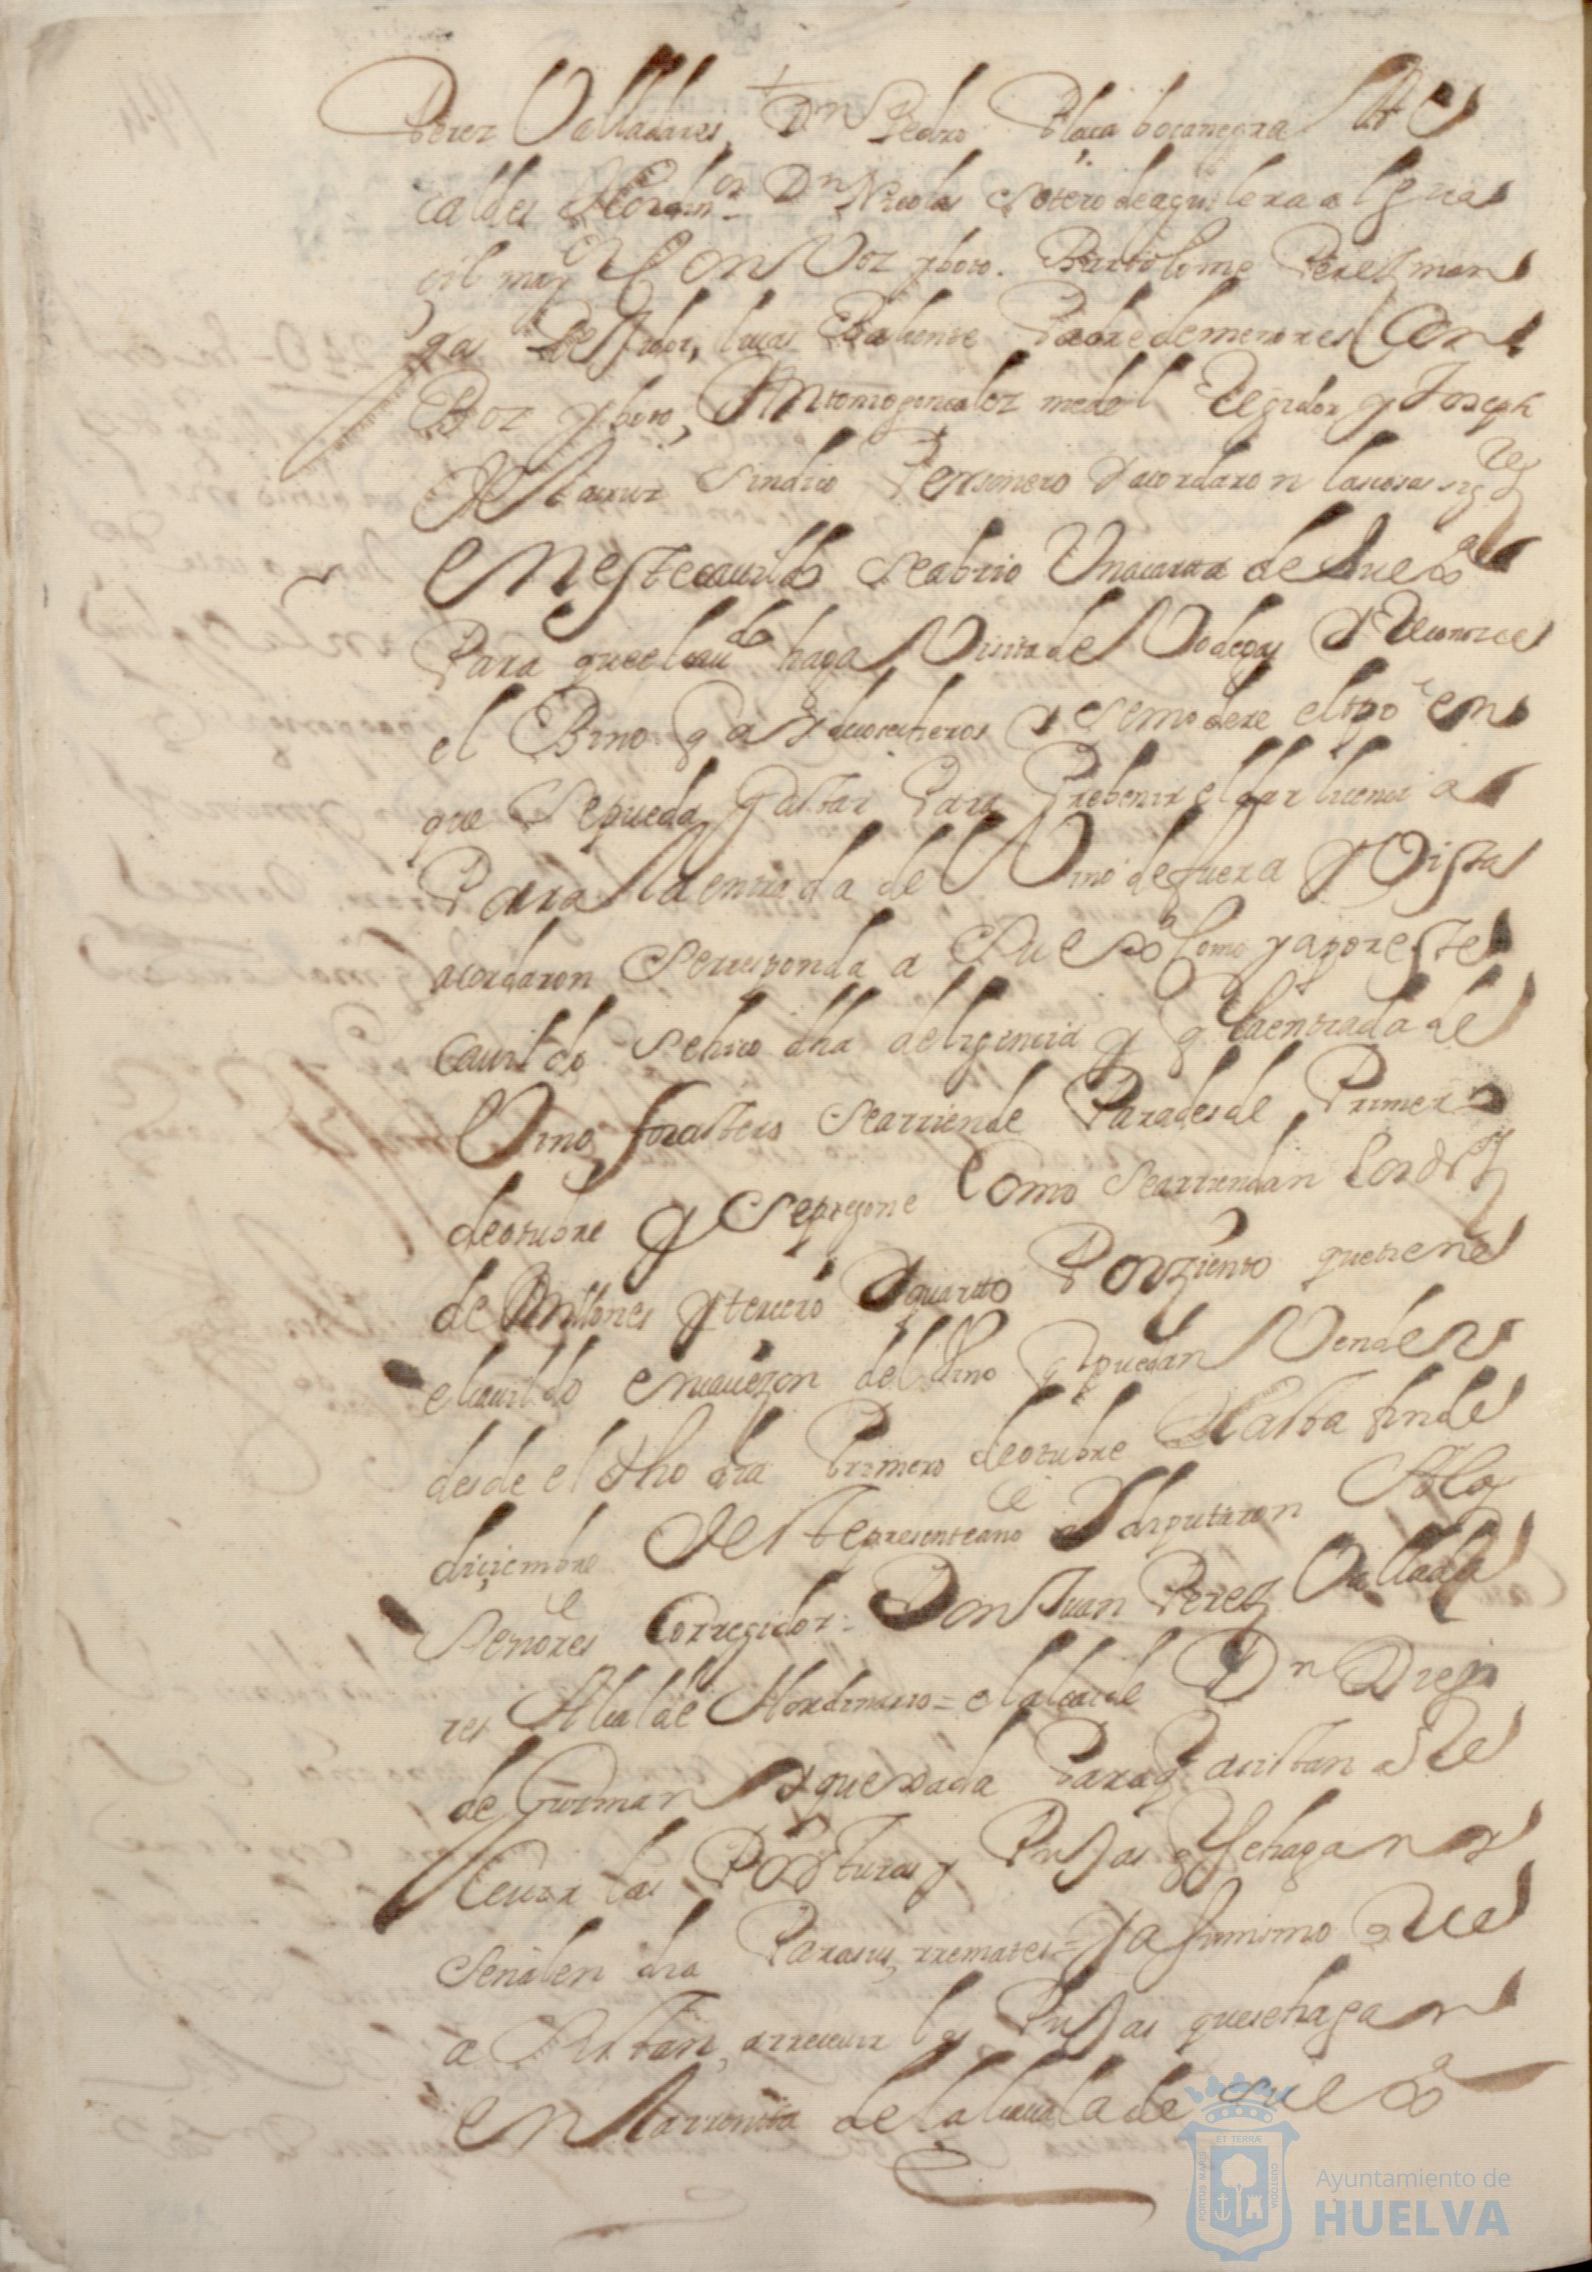 Perez Valladares, Dn Pedro Plaça bocanegra Al
caldes Hordin.os Dn Nicolas Sotero de aguilera algua
cil may.or Con Voz y boto. Bartolome Perez mon
gas Rexidor, lucas Baliente Padre de menores Con
Boz y boto, Antonio gonzalez medel Regidor y Joseph
Sindico Personero Y acordaron las cosas sig.tes
En este cauildo se abrio Una carta de Su ex.a
Para que el cau.do haga Visita de Vodegas Y Reconozca
el Bino q ay de cosecheros Y se modere el tpo en
que Se pueda gastar Para Prebenir el dar licencia
Para la entrada de Vino de fuera Y Vista
acordaron Se rresponda a Su ex.a Como ya por este
Cauildo Se hizo dha deligencia y q la entrada de
Vino forastero Se arriende Para desde Primero
de otubre Y Se pregone Como Se arriendan los dros
de Millones y tercero Y quarto Por ziento que tiene
el cauildo en cauezon del Vino q puedan Vender
desde el dho dia Primero de otubre Hasta fin de
diziembre deste presente año Y diputaron A los
Señores Corregidor = Don Juan Perez Vallada
res Alcalde Hordinario = el alcaide Dn Diego
de Guzman Y quesada Para q asistan a Re
ceuir las Posturas y Pujas q Se hagan Y
Señalen dia Para sus rremates = Y asimismo que
asistan a rreceuir las Pujas que se hagan
en la rrenta de la alcauala de Su ex.a
PORTUS MARIS ET TERRÆ CUSTODIA
Ayuntamiento de
HUELVA